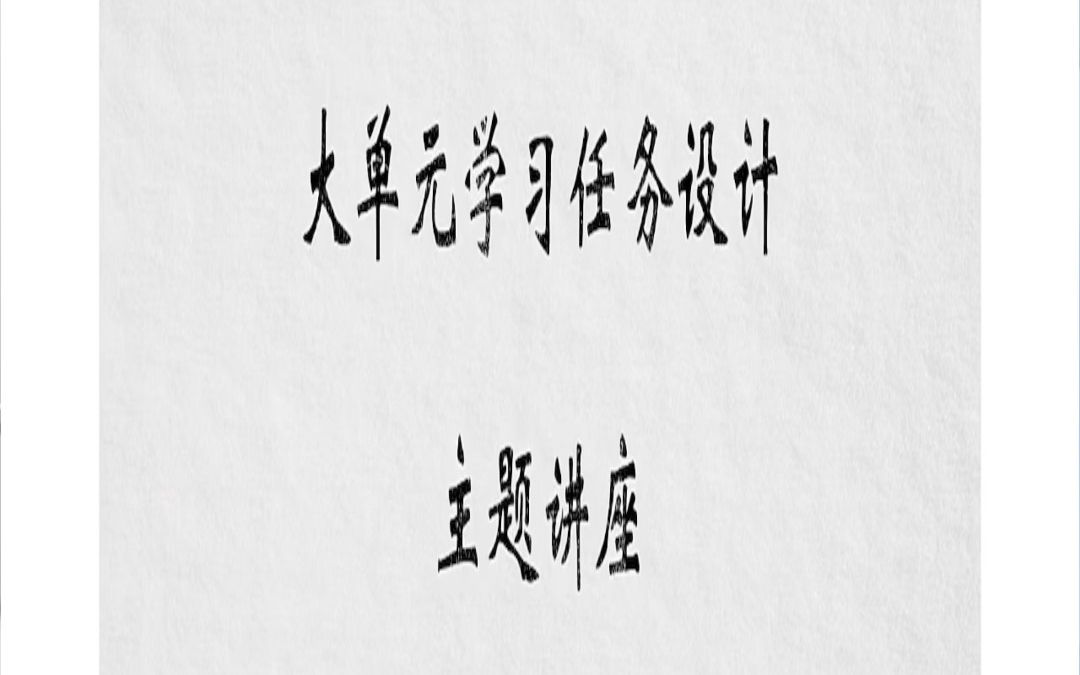 大单元学习任务设计
主题讲座